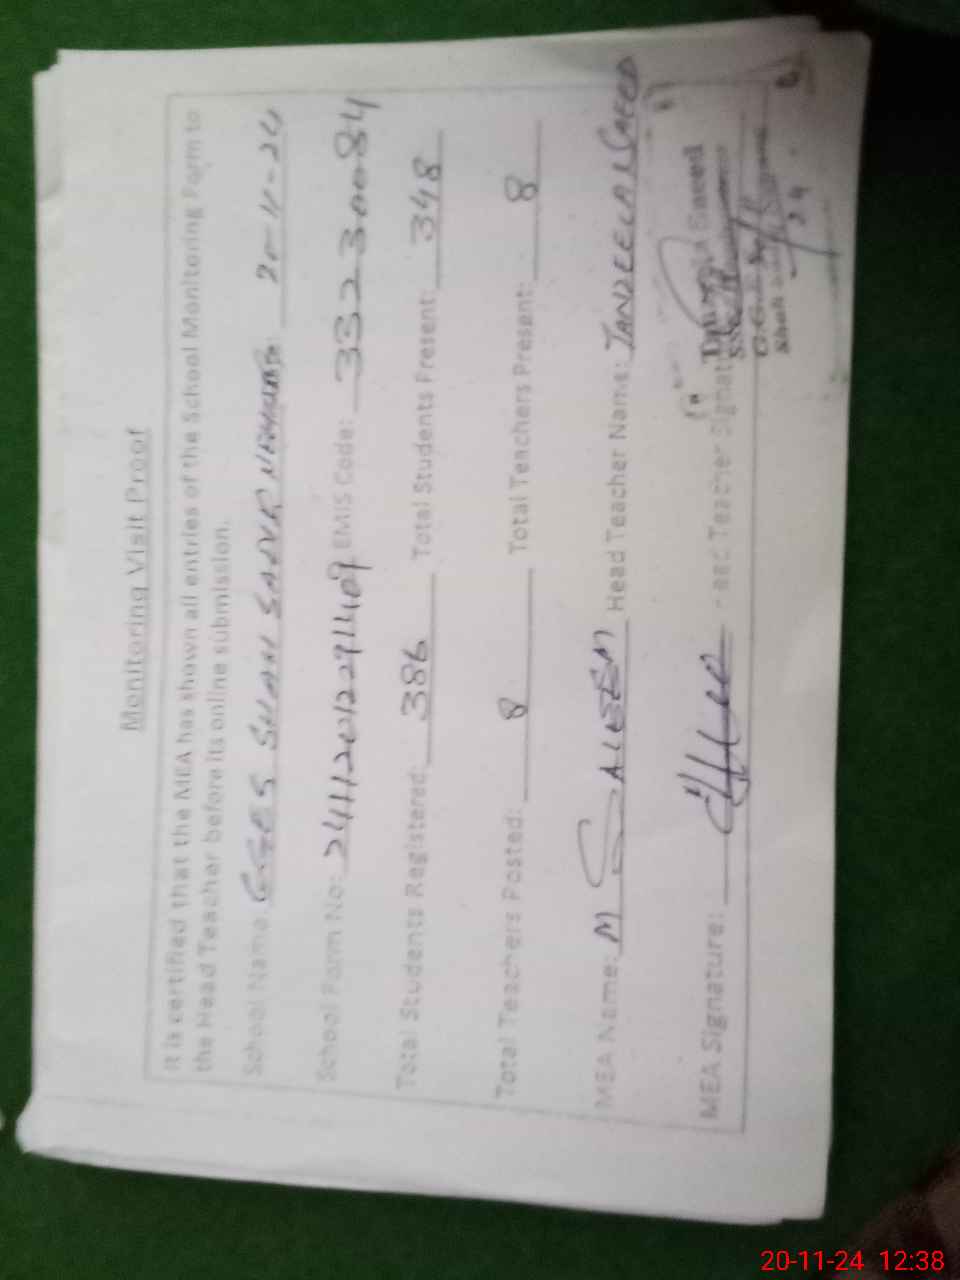 Monitoring Visit Proof
It is certified that the MEA has shown all entries of the School Monitoring Form to
the Head Teacher before its online submission.
School Name: GGES SHAH SADUR 20-11-24
School Form No: EMIS Code: 33230084
Total Students Registered: 386 Total Students Present: 348
Total Teachers Posted: 8 Total Teachers Present: 8
MEA Name: M SALEEM Head Teacher Name: TANZEELA SAEED
MEA Signature: Head Teacher Signature
Saeed
20-11-24 12:38